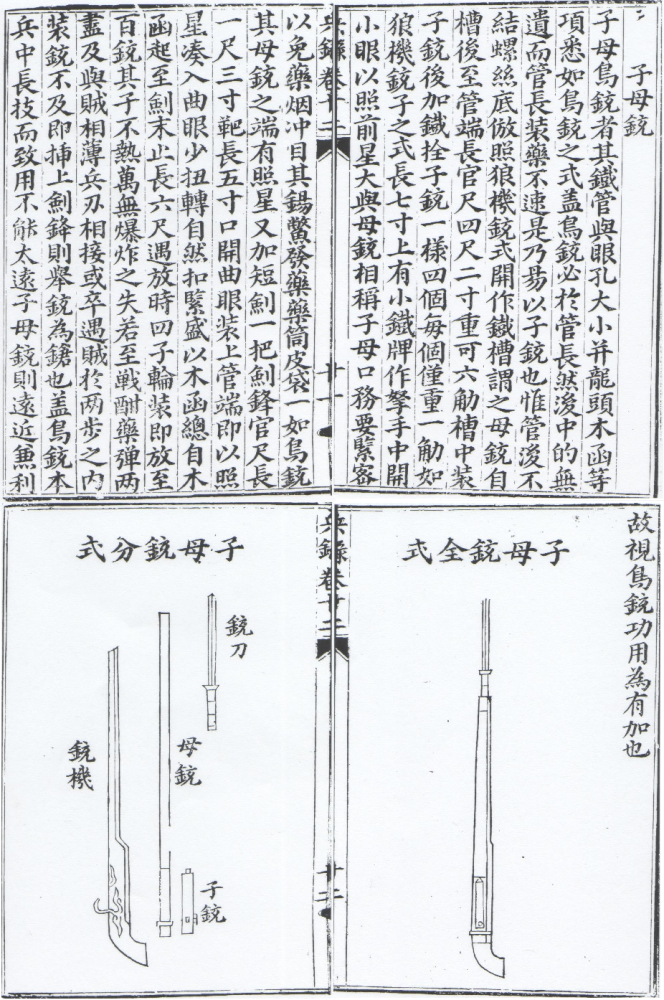 子母銃
子母鳥銃者其鐵管與眼孔大小并龍頭木函等
項悉如鳥銃之式盖鳥銃必於管長然後中的無
遺而管長装藥不速是乃易以子銃也惟管後不
結螺絲底倣照狼機銃式開作鐵槽謂之母銃自
槽後至管端長官尺四尺二寸重可六觔槽中装
子銃後加鐵拴子銃一樣四個每個僅重一觔如
狼機銃子之式長七寸上有小鐵牌作拏手中開
小眼以照前星大與母銃相稱子母口務要緊密
兵錄卷十二
廿一
以免藥烟冲目其錫鱉發藥藥筒皮袋一如鳥銃
其母銃之端有照星又加短劍一把劍鋒官尺長
一尺三寸靶長五寸口開曲眼装上管端即以照
星凑入曲眼少扭轉自然扣緊盛以木函總自木
函起至劍末止長六尺遇放時四子輪装即放至
百銃其子不熱萬無爆炸之失若至戰酣藥彈两
盡及與賊相薄兵刃相接或卒遇賊於两步之内
装銃不及即揷上劍鋒則舉銃為鎗也盖鳥銃本
兵中長技而致用不能太遠子母銃則遠近兼利
故視鳥銃功用為有加也
子母銃全式
兵錄卷廿二
廿二
子母銃分式
銃刀
母銃
子銃
銃機